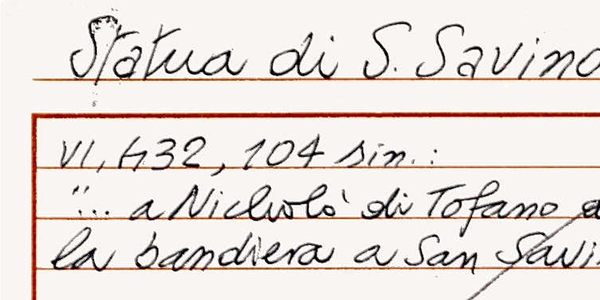 Statua di S. Savino
VI, 432, 104 sin.:
"... a Nicholò di Tofano
la bandiera a San Savi